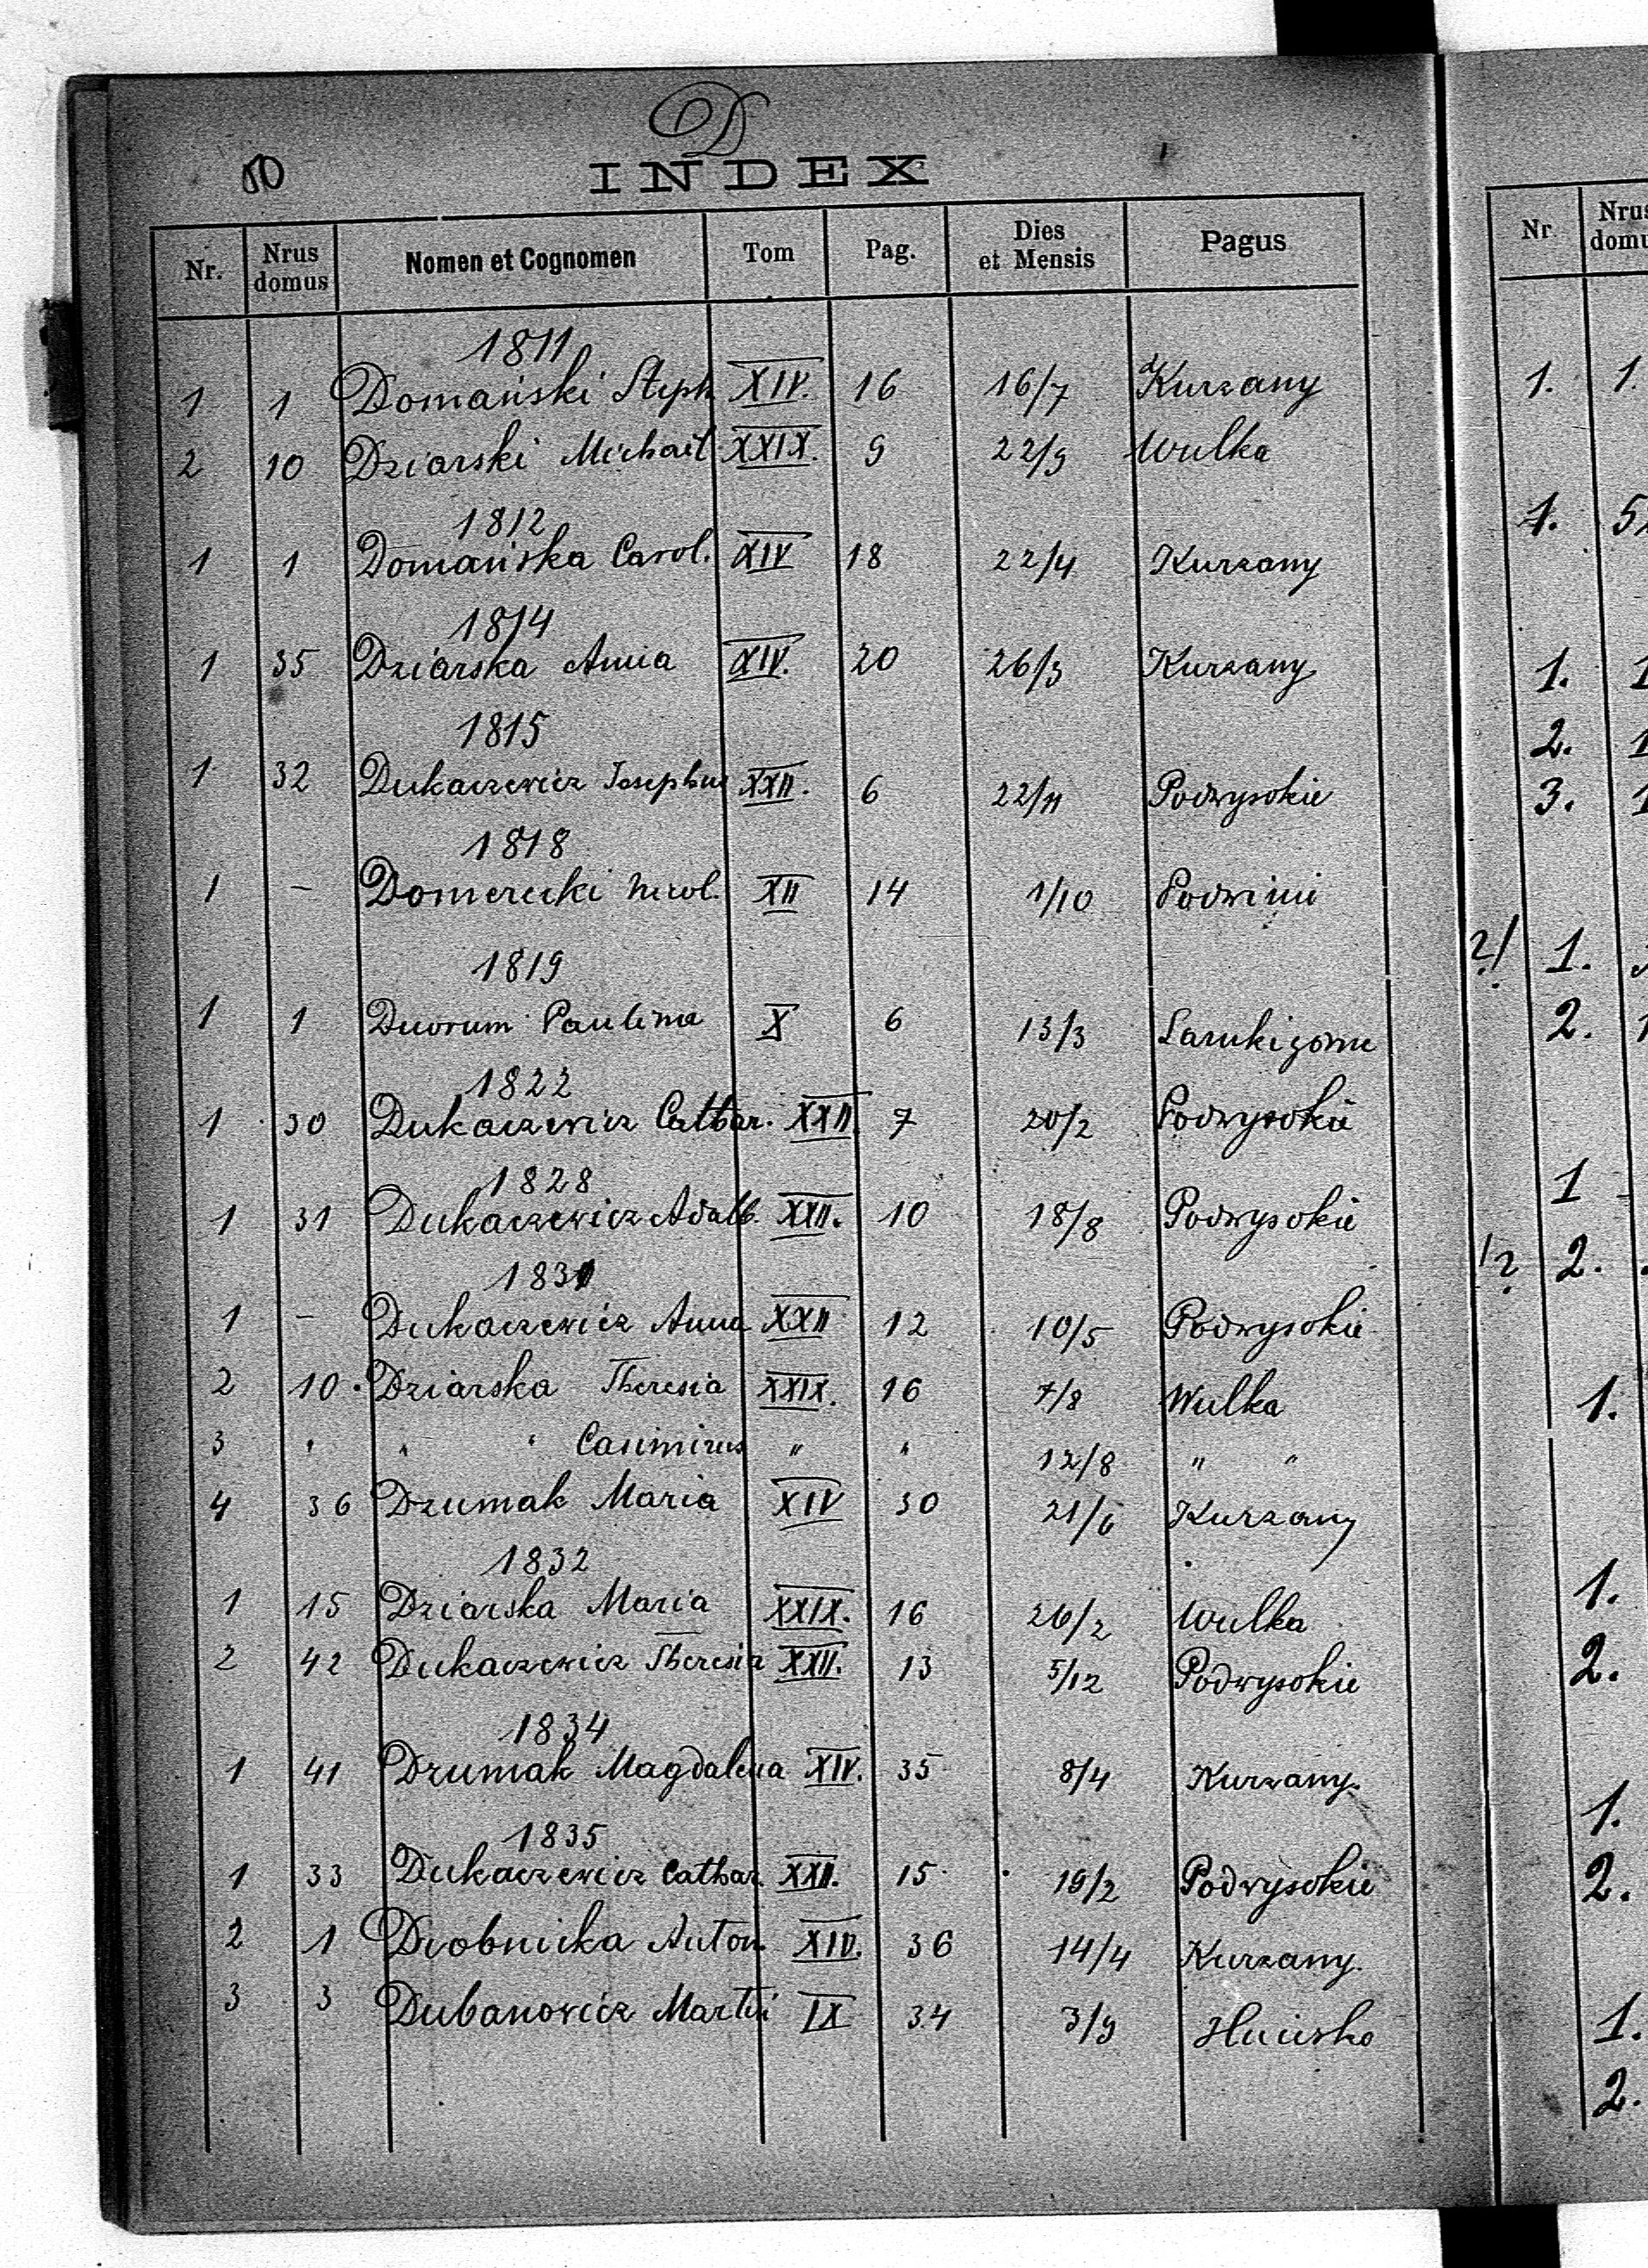 D
10 INDEX
Nr. Nrus domus Nomen et Cognomen Tom Pag. Dies et Mensis Pagus
1811
1 1 Domański Steph XIV. 16 16/7 Kurzany
2 10 Dziarski Michail XXIX. 9 22/9 Wulka
1812
1 1 Domańska Carol. XIV 18 22/4 Kurzany
1814
1 35 Dziarska Anna XIV. 20 26/3 Kurzany
1815
1 32 Dukaczewicz Josephus XXII. 6 22/11 Podwysokie
1818
1 – Domerecki Nicol. XII 14 1/10
1819
1 1 Duorum Paulina X 6 13/3
1822
1 30 Dukaczewicz Cathar. XXII. 7 20/2 Podwysokie
1828
1 31 Dukaczewicz Adalb. XXII. 10 18/8 Podwysokie
1831
1 – Dukaczewicz Anna XXII 12 10/5 Podwysokie
2 10. Dziarska Theresia XXIX. 16 7/8 Wulka
3 " " " Casimirus " " 12/8 " "
4 36 Drumak Maria XIV 30 21/6 Kurzany
1832
1 15 Dziarska Maria XXIX. 16 26/2 Wulka
2 42 Dukaczewicz Theresia XXII. 13 5/12 Podwysokie
1834
1 41 Drumak Magdalena XIV. 35 8/4 Kurzany.
1835
1 33 Dukaczewicz Cathar. XXII. 15 19/2 Podwysokie
2 1 Drobnicka Anton. XIV. 36 14/4 Kurzany.
3 3 Dubanowicz Martin IX 34 3/9 Hucisko
Nr Nrus domu
1. 1.
1.
1. 1
2. 1
3. 1
?/ 1.
2. 1
1 -
!? 2.
1.
1.
2.
1.
2.
1.
2.